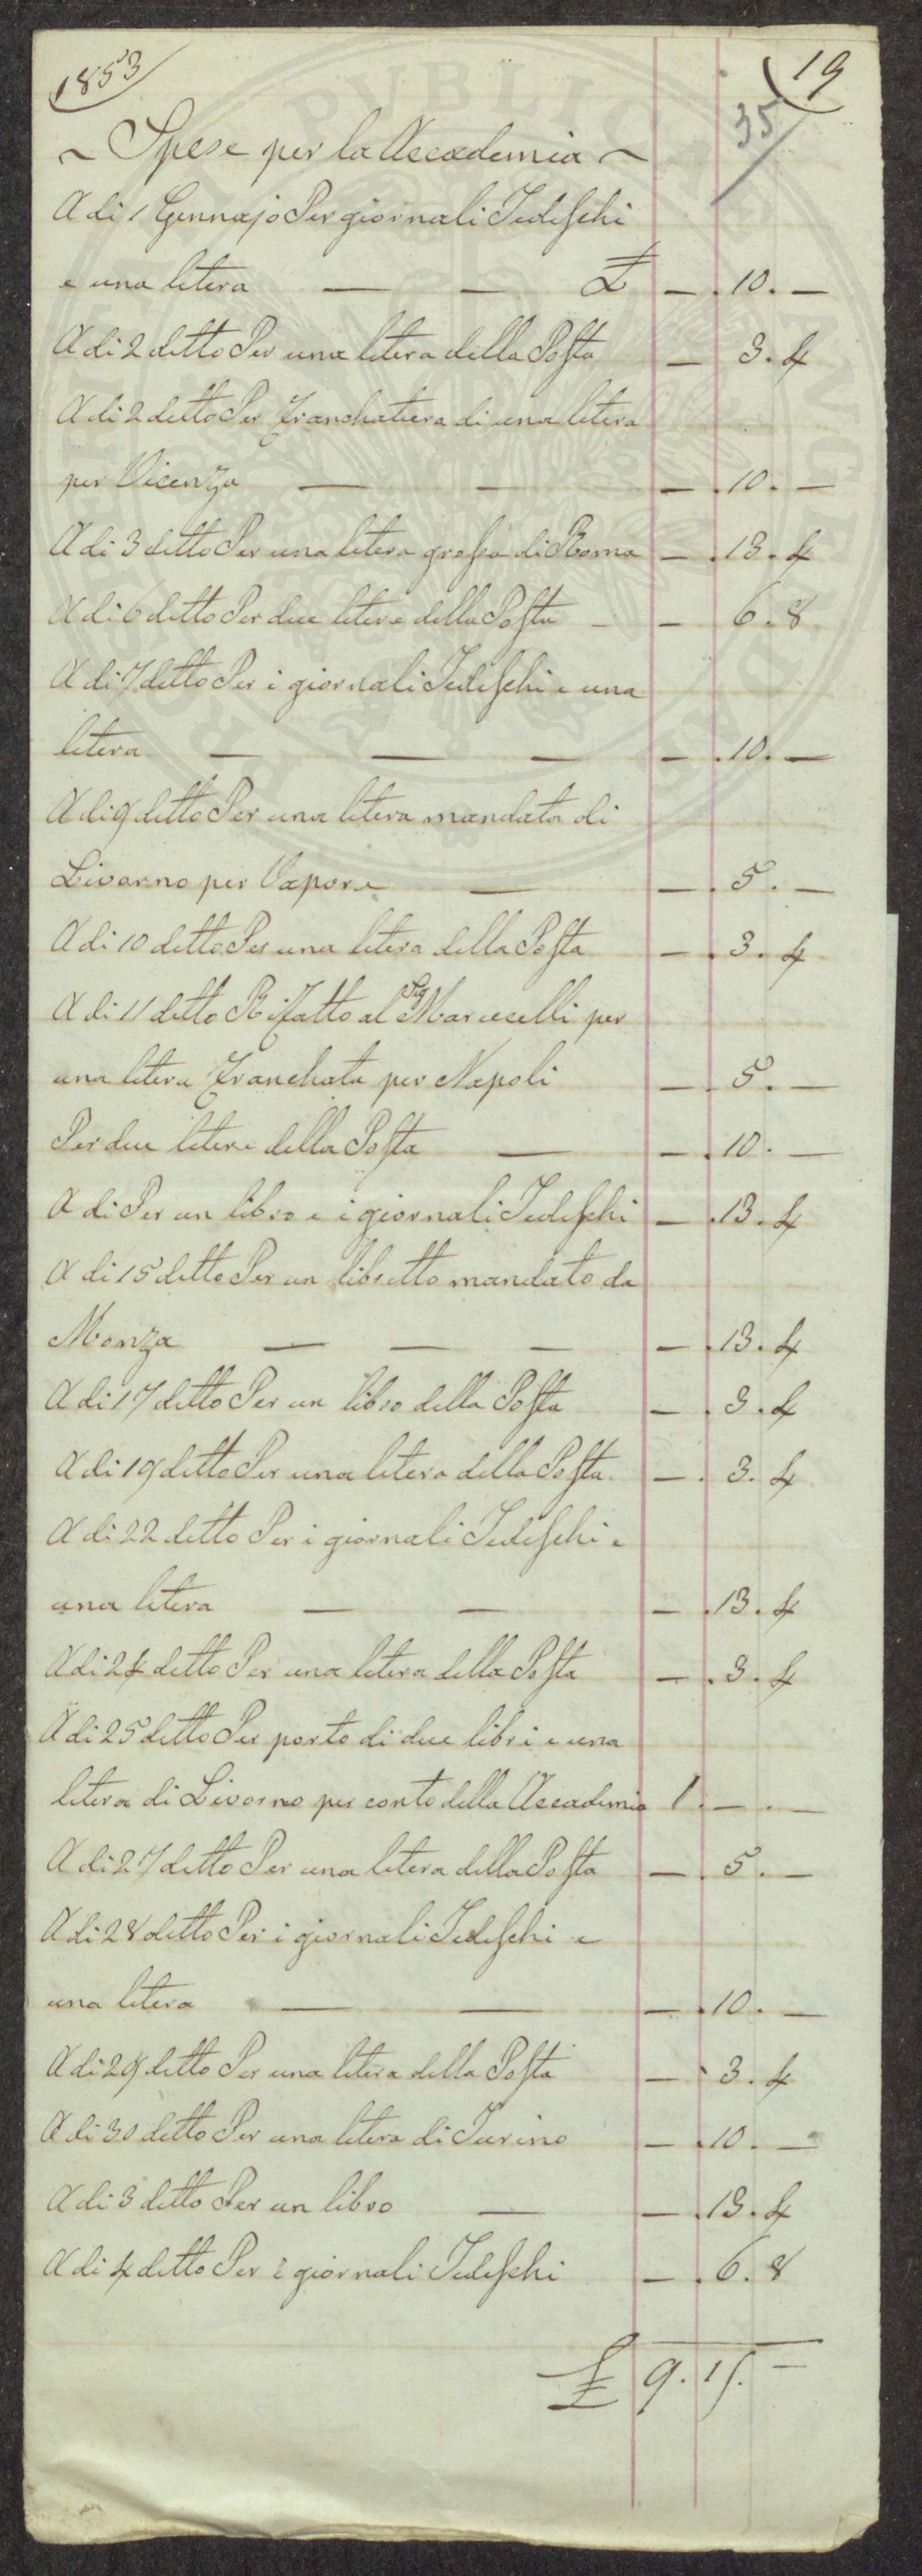 1853
19
35
~ Spese per la Accademia ~
A di 1 Gennajo Per giornali Tedeschi
e una litera — — £ — . 10 . —
A di 2 ditto Per una litera della Posta — 3 . 4
A di 2 ditto Per Franchatura di una litera
per Vicenza — — — . 10 . —
A di 3 ditto Per una litera grossa di Roma — . 13 . 4
A di 6 ditto Per due litere della Posta — — 6 . 8
A di 7 ditto Per i giornali Tedeschi e una
litera — — — — . 10 . —
A di 9 ditto Per una litera mandata di
Livorno per Vapore — — . 5 . —
A di 10 ditto Per una litera della Posta — . 3 . 4
A di 11 ditto Rifatto al Sig Marucelli per
una litera Franchata per Napoli — . 5 . —
Per due litere della Posta — — . 10 . —
A di Per un libro e i giornali Tedeschi — . 13 . 4
A di 15 ditto Per un libretto mandato da
Monza — — — — . 13 . 4
A di 17 ditto Per un libro della Posta — . 3 . 4
A di 19 ditto Per una litera della Posta — . 3 . 4
A di 22 ditto Per i giornali Tedeschi e
una litera — — — . 13 . 4
A di 24 ditto Per una litera della Posta — . 3 . 4
A di 25 ditto Per porto di due libri e una
litera di Livorno per conto della Accademia 1 . — . —
A di 27 ditto Per una litera della Posta — . 5 . —
A di 28 ditto Per i giornali Tedeschi e
una litera — — — . 10 . —
A di 29 ditto Per una litera della Posta — . 3 . 4
A di 30 ditto Per una litera di Turino — . 10 . —
A di 3 ditto Per un libro — — . 13 . 4
A di 4 ditto Per i giornali Tedeschi — . 6 . 8
£ 9 . 15 . —